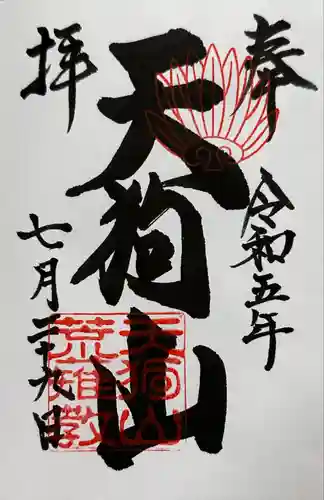 奉
拝
天狗山
令和五年
七月二十九日
天狗山
荒雄敎